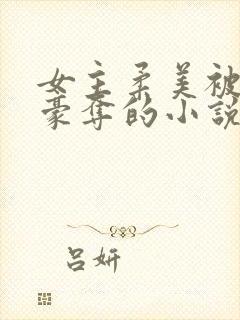 女主柔美被
豪夺的小说
吕妍